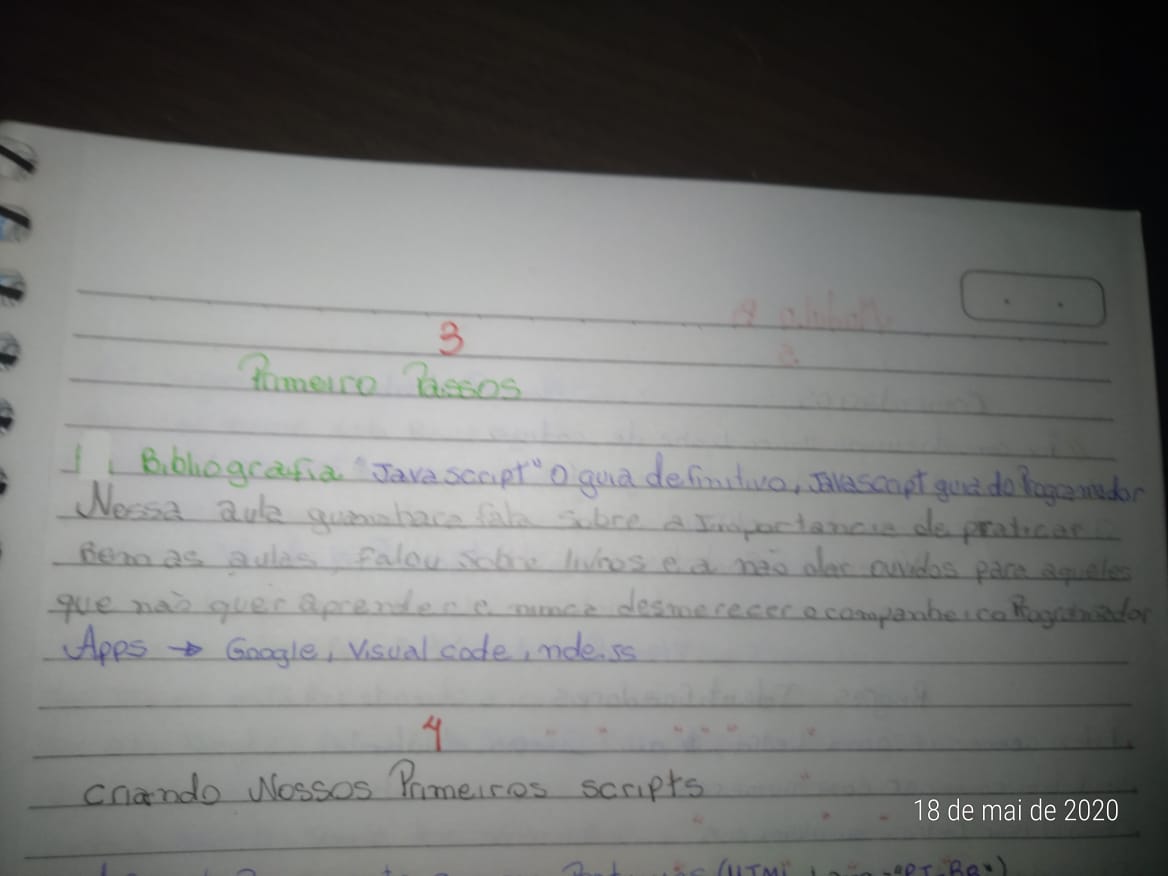 3
Primeiro Passos
1. Bibliografia "Javascript" O guia definitivo, Javascript guia do Programador
Nossa aula guanabara fala sobre a Importancia de praticar
Bem as aulas, falou sobre livros e a não dar ouvidos para aqueles
que não quer aprender e nunca desmerecer o companheiro Programador
Apps → Google, Visual code,
4
criando Nossos Primeiros scripts
18 de mai de 2020